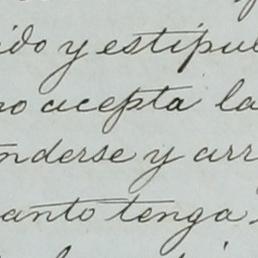 ido y estipul
no acepta la
nderse y arr
anto tenga